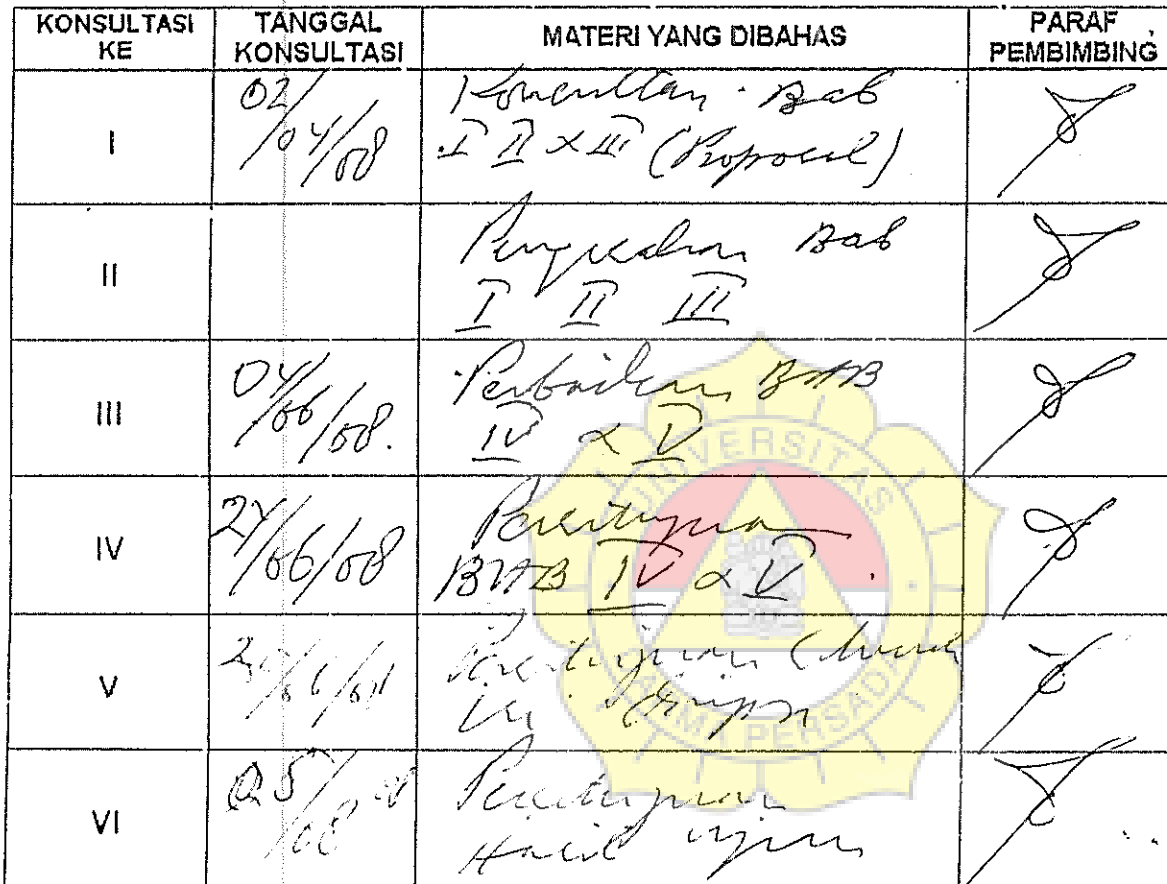 KONSULTASI KE TANGGAL KONSULTASI MATERI YANG DIBAHAS PARAF PEMBIMBING
I 02/04/08 Konsultasi Bab
I II & III (Proposal)
II Bab
I II III
III 04/06/08. Perbaikan BAB
IV & V
IV 24/06/08 Persetujuan
BAB IV & V.
V Persetujuan
VI Persetujuan
Hasil ujian
UNIVERSITAS
DARMA PERSADA